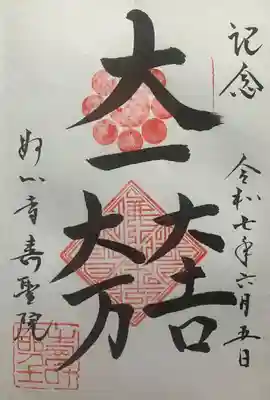 記念
令和七年六月五日
大一
大吉
大万
妙心寺壽聖院